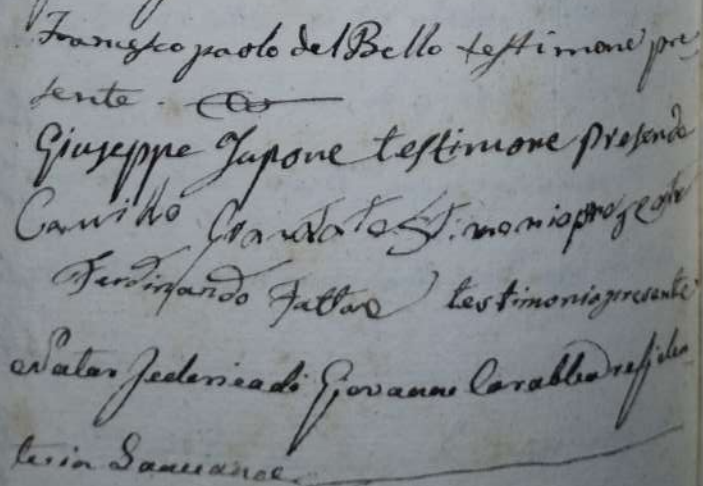 Francesco paolo del Bello testimone pre
sente.
Giuseppe Japone testimone presende
Camillo testimonio presente
Ferdinando Fattore testimonio presente
Notar Federico di Giovanne Carabba residen
te in Lanciano